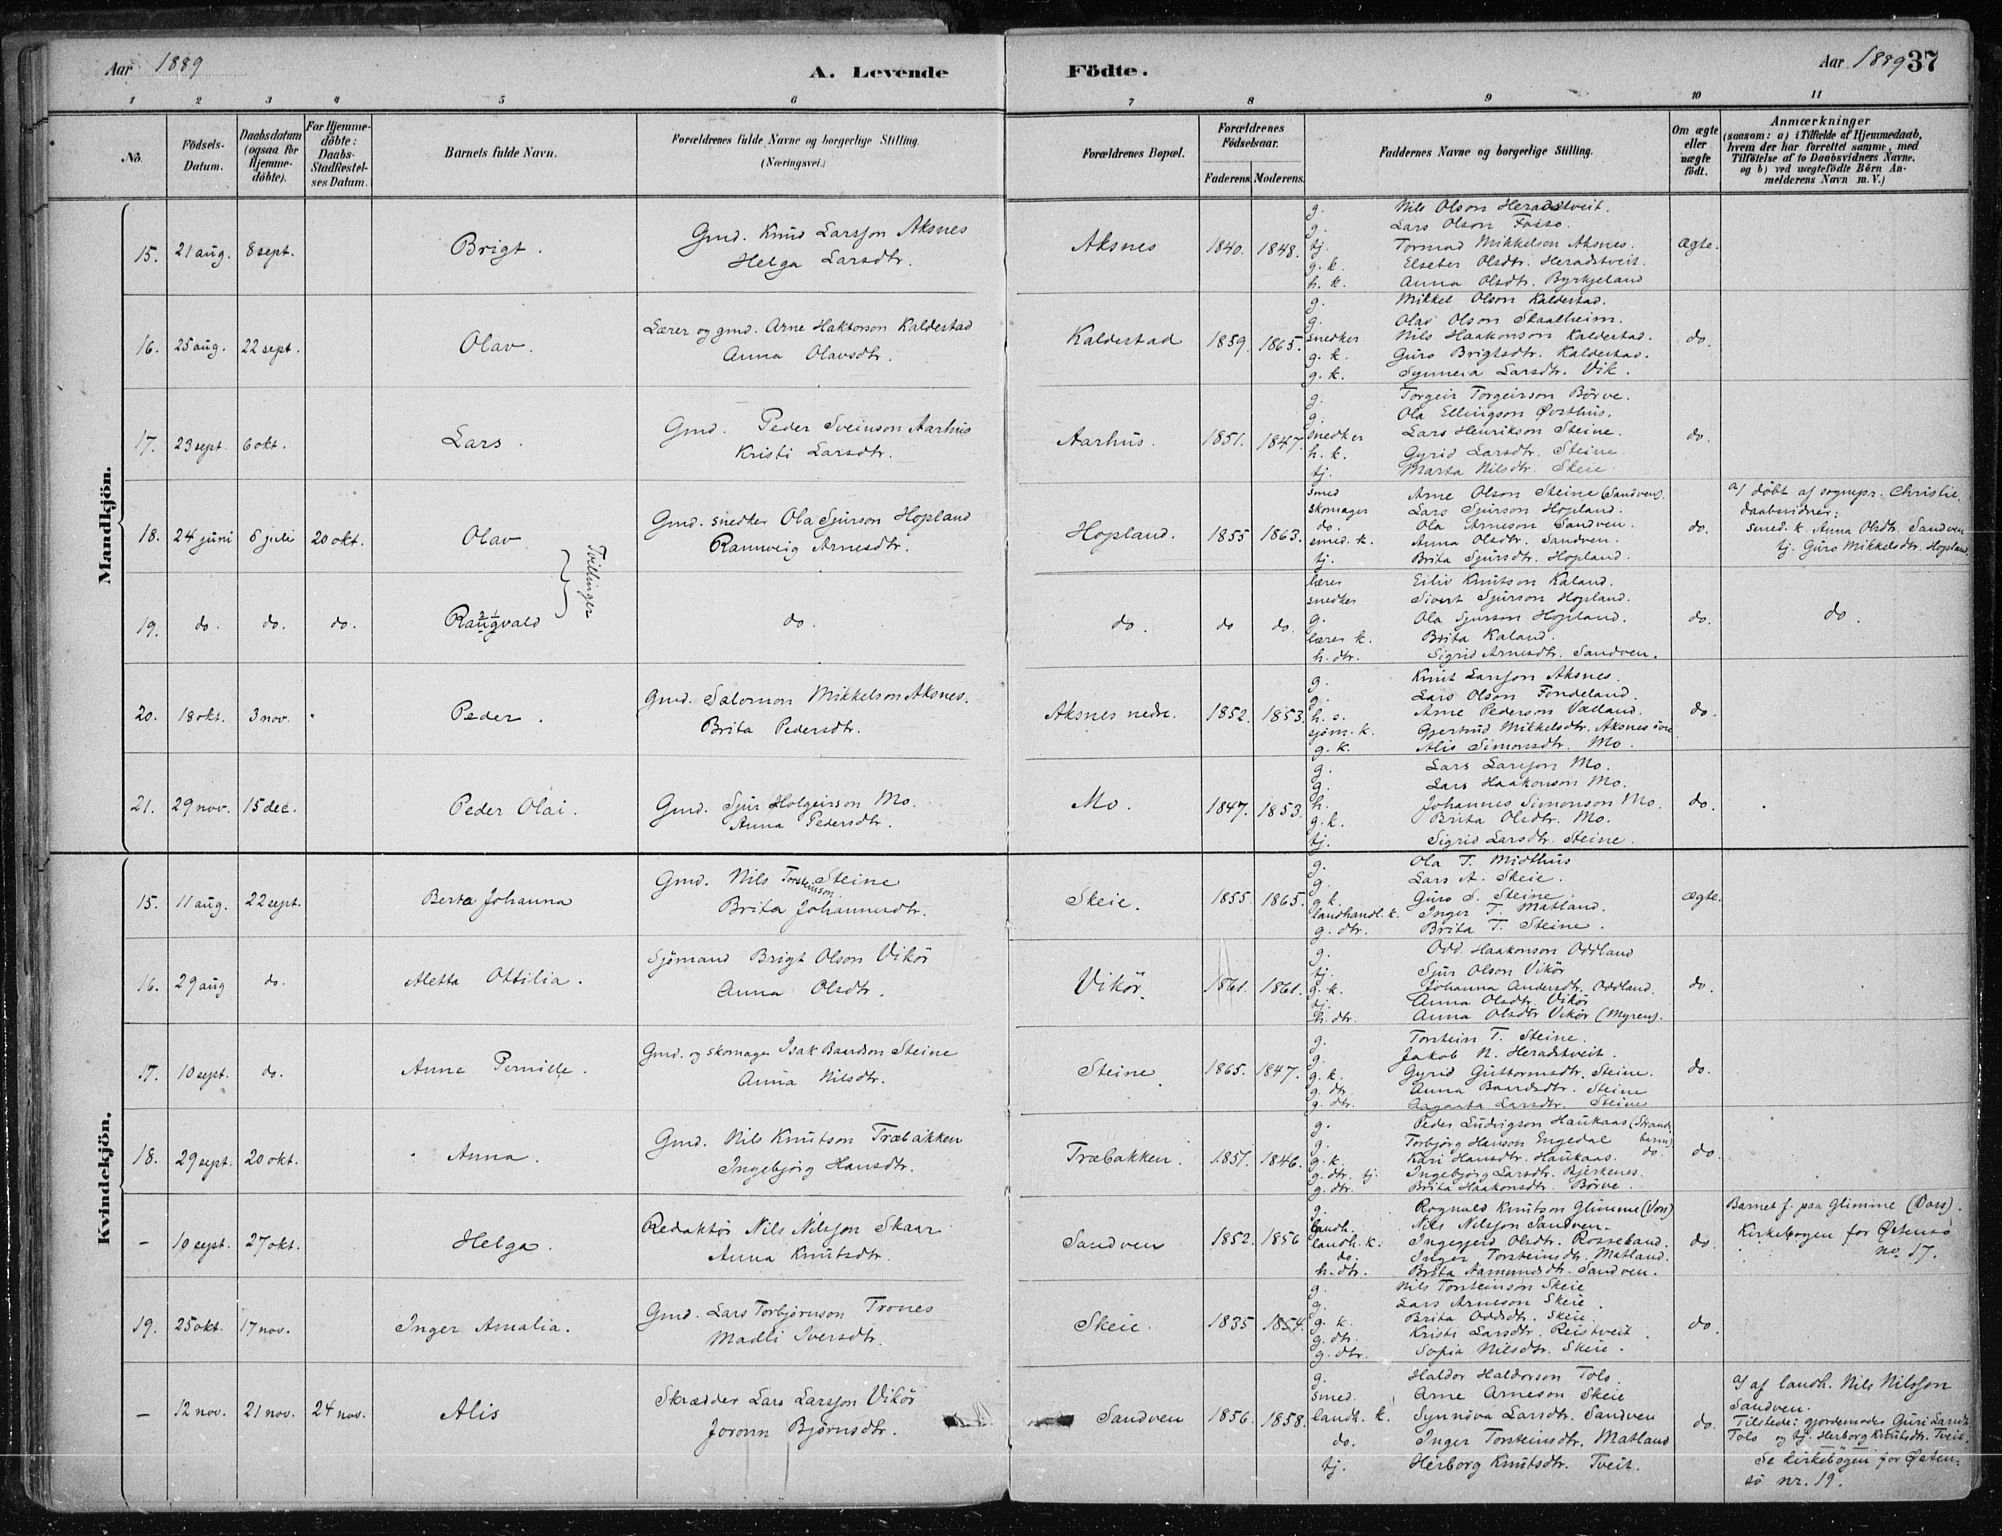 Aar 1889
A. Levende
Födte.
Aar 1889
37
1 2 3 4 5 6 7 8 9 10 11
No.
Födsels-Datum.
Daabsdatum (ogsaa for Hjemme-döbte).
For Hjemme-döbte: Daabs-Stadfæstel-ses Datum.
Barnets fulde Navn.
Forældrenes fulde Navne og borgerlige Stilling.
(Næringsvei.)
Forældrenes Bopæl.
Forældrenes Födselsaar.
Faderens. Moderens.
Faddernes Navne og borgerlige Stilling.
Om ægte eller uægte födt.
Anmærkninger
(saasom: a) i Tilfælde af Hjemmedaab,
hvem der har forrettet samme, med
Tilföielse af to Daabsvidners Navne.
og b) ved uægtefödte Börn An-
melderens Navn m. V.)
Mandkjön.
15. 21 aug. 8 sept. Brigt.
Gmd. Knud Larsson Aksnes
Helga Larsdtr.
Aksnes 1840. 1848.
g. Nils Olson Heradstveit.
g. Lars Olson Fosso.
tj. Tormod Mikkelson Aksnes.
g. k. Elseber Olsdtr. Heradstveit.
h. k. Anna Olsdtr. Byrkjeland
Ægte.
16. 25 aug. 22 sept. Olav.
Lærer og gmd. Arne Haktorson Kaldestad
Anna Olavsdtr.
Kaldestad 1859. 1865.
g. Mikkel Olson Kaldestad.
g. Olav Olson Skaalheim.
snedker Nils Haakonson Kaldestad.
g. k. Guro Brigtsdtr. Kaldestad.
g. k. Synneva Larsdtr. Vik.
do.
17. 23 sept. 6 okt. Lars.
Gmd. Peder Sveinson Aarhus
Kristi Larsdtr.
Aarhus. 1851. 1847.
g. Torgeir Torgeirson Börve.
g. Ola Ellingson Østhus.
snedker Lars Henrikson Steine.
h. k. Gyrid Larsdtr. Steine
tj. Marta Nilsdtr. Skeie
do.
18. 24 juni 6 juli 20 okt. Olav
Gmd. snedker Ola Sjurson Hopland
Rannveig Arnesdtr.
Hopland. 1855 1863.
smed Arne Olson Steine (Sandven).
skomager Lars Sjurson Hopland.
do. Ola Arneson Sandven.
smed. k. Anna Olsdtr. Sandven.
tj. Brita Sjursdtr. Hopland.
do.
a) döbt af sognepr. Christie.
daabsvidner:
smed. k. Anna Olsdtr. Sandven
tj. Guro Mikkelsdtr. Hopland
Tvillinger
19. do. do. do. Raugvald
do.
do. do do.
lærer Eiliv Knutson Kaland.
snedker Sivert Sjurson Hopland.
g. Ola Sjurson Hopland.
lærer k. Brita Kaland.
h. dtr. Sigrid Arnesdtr. Sandven.
do. do
20. 18 okt. 3 nov. Peder.
Gmd. Salomon Mikkelson Aksnes.
Brita Pedersdtr.
Aksnes nedre. 1852. 1853.
g. Knut Larsson Aksnes.
g. Lars Olson Fondeland.
h. s. Arne Pederson Valland.
sjöm. k. Gjertrud Mikkelsdtr. Aksnes övre
g. k. Alis Simonsdtr. Mo.
do.
21. 29 nov. 15 dec. Peder Olai.
Gmd. Sjur Holgeirson Mo.
Anna Pedersdtr.
Mo. 1847. 1853.
g. Lars Larsson Mo.
g. Lars Haakonson Mo.
h. Johannes Simonson Mo.
g. k. Brita Olsdtr. Mo.
tj. Sigrid Larsdtr. Steine.
do.
Kvindekjön.
15. 11 aug. 22 sept. Berta Johanna
Gmd. Nils Torsteinson Steine
Brita Johannesdtr.
Skeie. 1855. 1865.
g. Ola T. Midthus
g. Lars A. Skeie.
g k. Guro S. Steine.
landhandl. k. Inger T. Matland.
g. dtr. Brita T. Steine.
Ægte.
16. 29 aug do. Aletta Ottilia.
Sjömand Brigt Olson Vikör
Anna Olsdtr.
Vikör. 1861. 1861.
g. Odd Haakonson Oddland
tj. Sjur Olson Vikör
g. k. Johanna Andersdtr. Oddland.
tj. Anna Olsdtr. Vikör
h. dtr. Anna Olsdtr Vikör (Myren).
do.
17. 10 sept. do. Anne Pernille.
Gmd. og skomager Isak Baardson Steine
Anna Nilsdtr.
Steine 1865. 1847.
g. Torstein T. Steine.
g. Jakob N. Heradstveit.
g. k. Gyrid Guttormsdtr. Steine.
g. dtr. Anna Baardsdtr. Steine
g. dtr. Aagaata Larsdtr. Steine
do.
18. 29 sept. 20 okt. Anna.
Gmd. Nils Knutson Træbakken
Ingebjörg Hansdtr.
Træbakken. 1851. 1846.
g. Peder Ludvigson Haukaas (Strandebarm)
g. Torbjörg Hanson Engedal
g. k. Kari Hansdtr. Haukaas. do.
g. dtr. tj. Ingebjörg Larsdtr. Bjerkenes.
g. dtr. Brita Haakonsdtr. Börve.
do.
– 10 sept. 27 okt. Helga.
Redaktör Nils Nilsson Skaar
Anna Knutsdtr.
Sandven 1852. 1856
g. Rognald Knutson Glimme (Vors)
landh. Nils Nilsson Sandven.
landh. k. Ingegjerd Olsdtr. Rosseband.
do. Inger Torsteinsdtr. Matland.
h. dtr. Brita Aamundsdtr. Sandven.
do.
Barnet f. paa Glimme (Vors).
Kirkebogen for Østensö
no. 17.
19. 25 okt. 17 nov. Inger Amalia.
Gmd. Lars Torbjörnson Trones
Madli Iversdtr.
Skeie. 1835 1854.
g. Nils Torsteinson Skeie
g. Lars Arneson Skeie.
g. k. Brita Oddsdtr. Skeie
g. dtr. Kristi Larsdtr. Reistveit.
g. dtr. Sofia Nilsdtr. Skeie.
do.
– 12 nov. 21 nov. 24 nov. Alis
Skrædder Lars Larsson Vikör
Joronn Björnsdtr.
Sandven 1856. 1858.
g. Haldor Haldorson Tolo.
smed. Arne Arneson Skeie
landh. k. Synnöva Larsdtr. Sandven
do. Inger Torsteinsdtr. Matland
tj. Herborg Knutsdtr. Tveit.
do.
a) af landh. Nils Nilsson
Sandven.
Tilstede: gjordemoder Guri Larsdtr.
Tolo og tj. Herborg Knutsdtr. Tveit.
Se kirkebogen for Østen-
sö nr. 19.